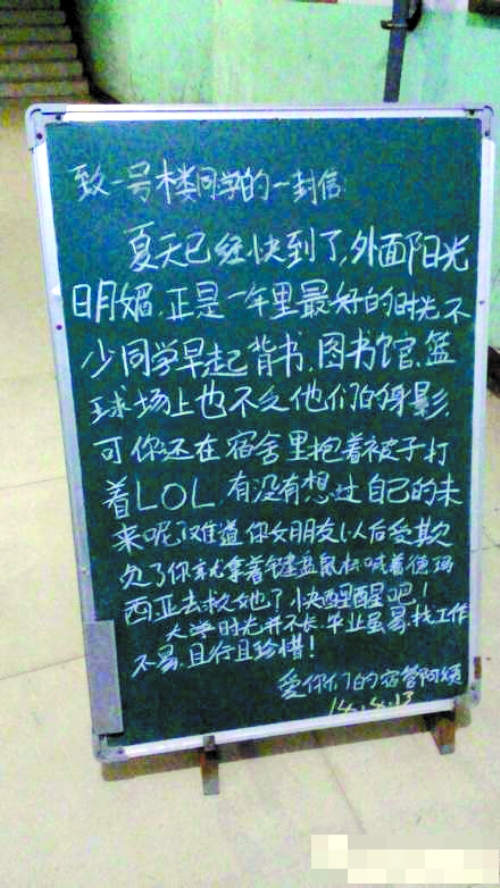 致一号楼同学的一封信:
夏天已经快到了,外面阳光
明媚.正是一年里最好的时光.不
少同学早起背书.图书馆.篮
球场上也不乏他们的身影.
可你还在宿舍里抱着被子打
着LOL.有没有想过自己的未
来呢?难道你女朋友以后受欺
负了你就拿着键盘鼠标喊着德玛
西亚去救她?快醒醒吧!
大学时光并不长.毕业虽易.找工作
不易.且行且珍惜!
爱你们的宿管阿姨
14.4.13